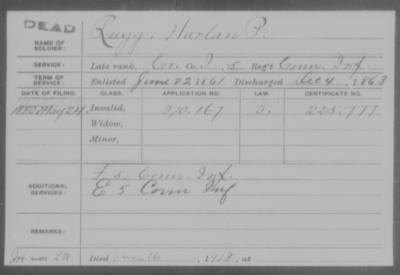 DEAD
NAME OF SOLDIER: Rugg, Harlan P.
SERVICE: Late rank, Co. I, 5 Reg't Conn. Inf.
TERM OF SERVICE: Enlisted June 22, 1861 Discharged Dec 4, 1863
DATE OF FILING. CLASS. APPLICATION NO. LAW. CERTIFICATE NO.
1880 May 24 Invalid, 370.167 225.777
Widow,
Minor,
ADDITIONAL SERVICES: 5 Conn. Inf.
E 5 Conn Inf
REMARKS:
Died 16, 1928, at